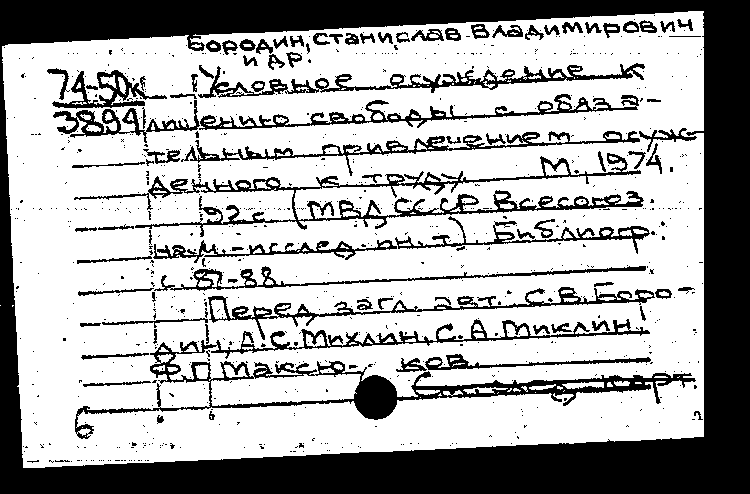 Бородин, Станислав Владимирович
и др.
74-50к Условное осуждение к
3894 лишению свободы с обяза-
тельным привлечением осуж-
денного к труду. М., 1974.
92 с (МВД СССР. Всесоюз.
науч.-исслед. ин. т) Библиогр.:
с. 87-88.
Перед загл. авт.: С.В. Боро-
дин, А.С. Михлин, С.А.
Ф.Г Максю- ков.
См. след. карт.
6